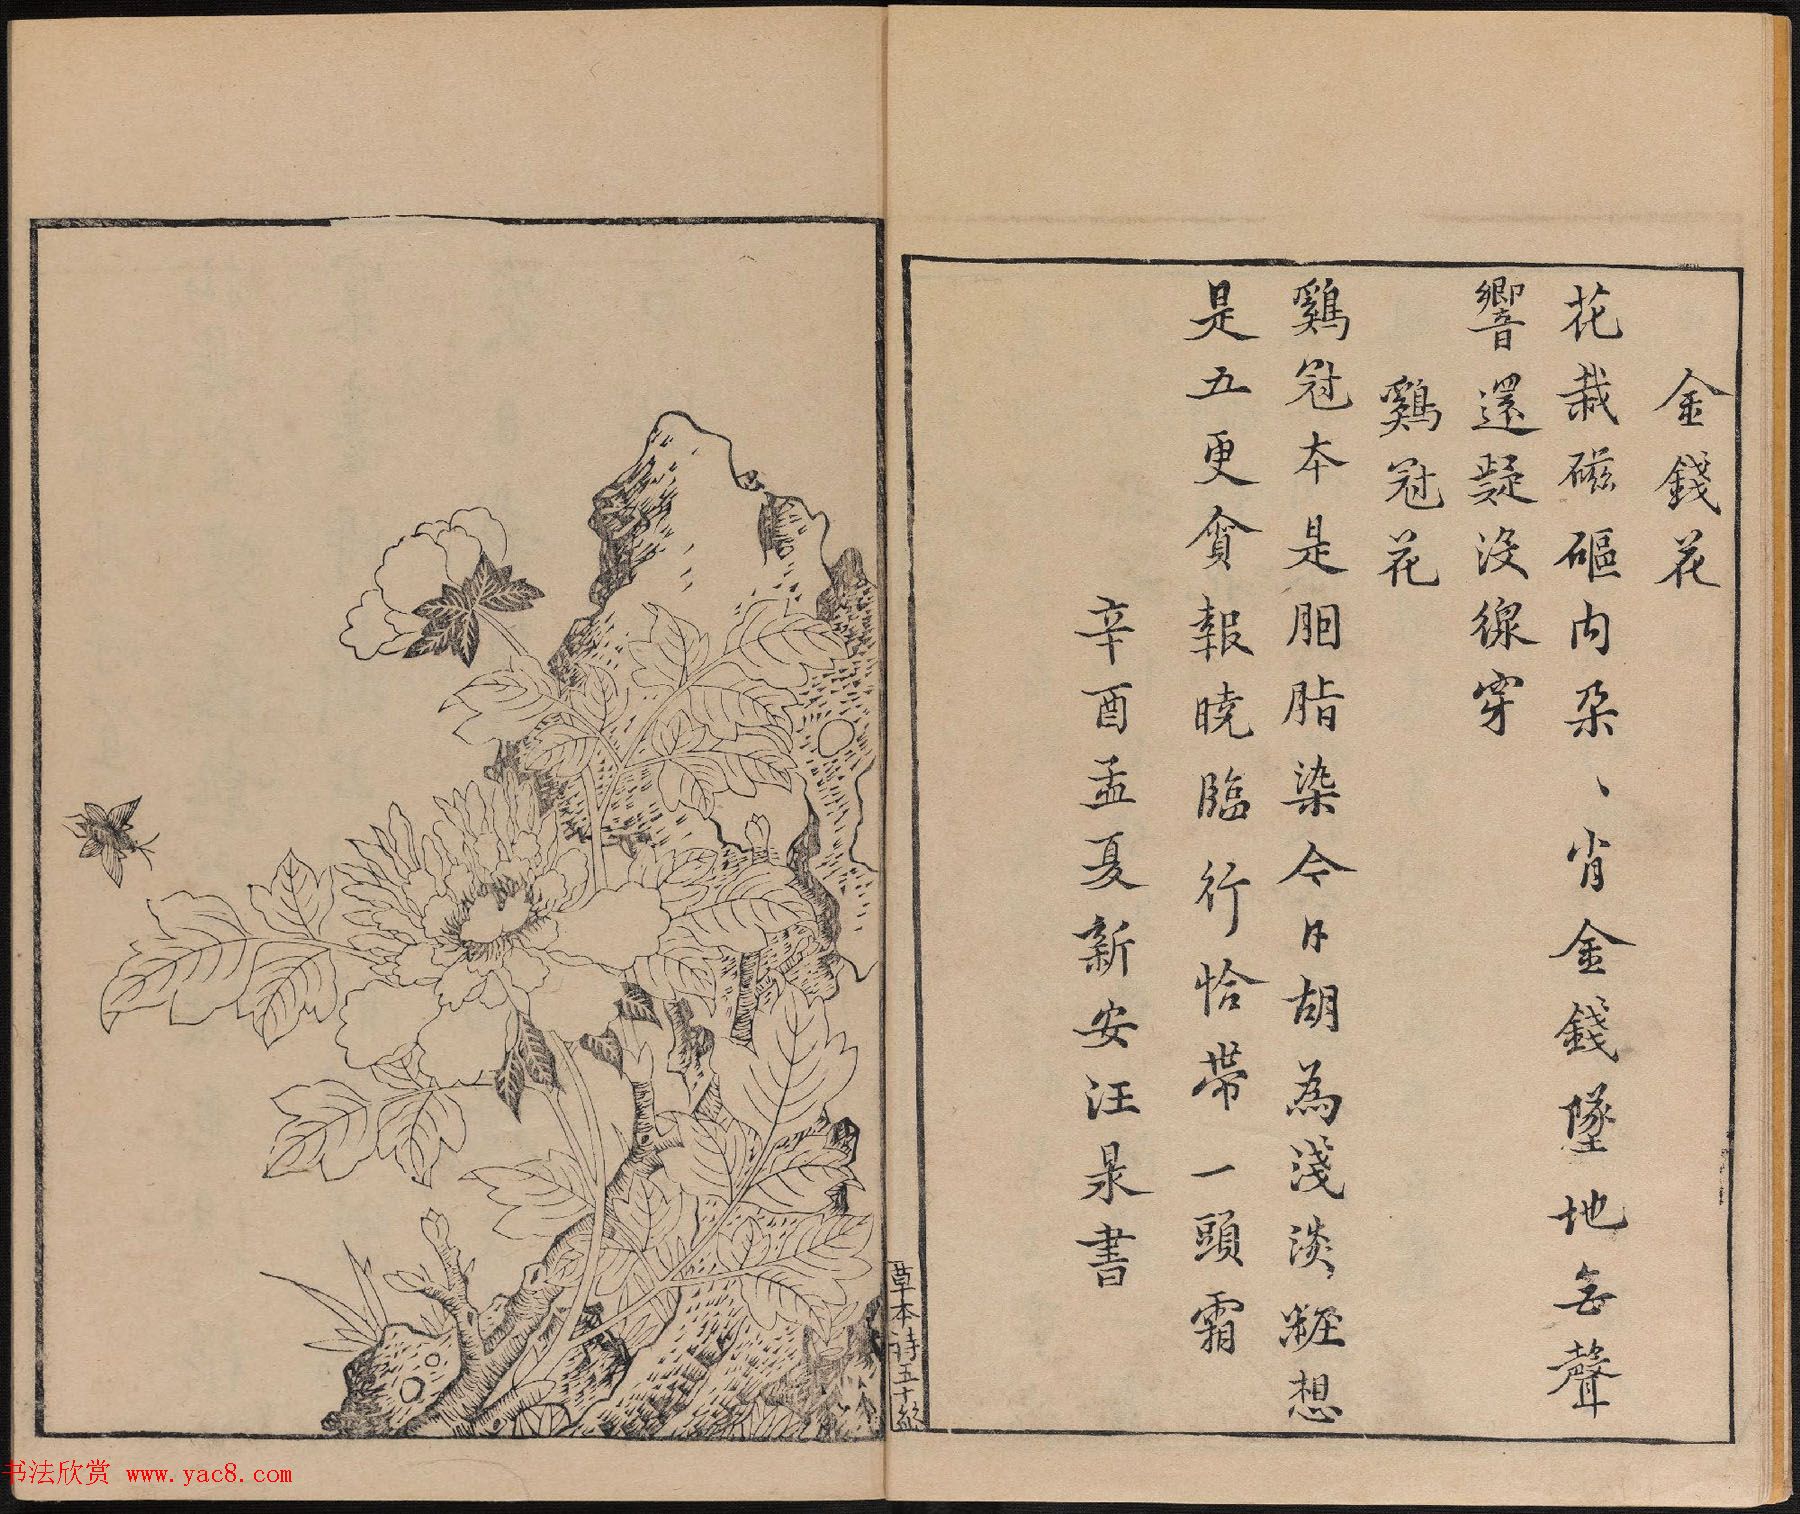 金錢花
花栽磁内朶、肖金錢墜地無聲
響還疑没線穿
鷄冠花
鷄冠本是胭脂染今日胡為淺淡粧想
是五更貪報曉臨行恰帶一頭霜
辛酉孟夏新安汪書
草本詩五十終
书法欣赏 www.yac8.com